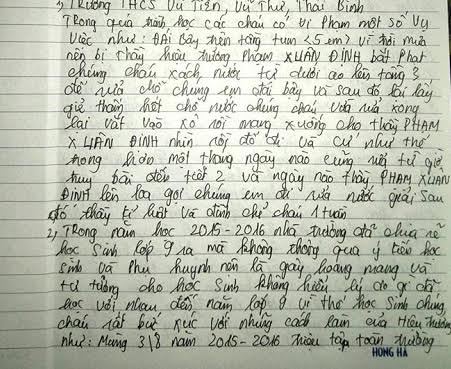 1) Trường THCS Vũ Tiến, Vũ Thư, Thái Bình
Trong quá trình học các cháu có vi Phạm một số vụ
việc như: Đái bậy trên tầng tum (5 em) vì trời mưa
nên bị Thầy hiệu trưởng Phạm XUÂN ĐỈNH bắt Phạt
chúng cháu xách nước từ dưới ao lên tầng 3
để rửa chỗ chúng em đái bậy và sau đó lại lấy
giẻ thấm hết chỗ nước chúng cháu vừa rửa xong
lại vắt vào xô rồi mang xuống cho thầy PHẠM
XUÂN ĐỈNH nhìn rồi đổ đi và cứ như thế
trong hơn một tháng ngày nào cũng rửa từ giờ
truy bài đến tiết 2 và ngày nào thầy PHẠM XUÂN
ĐỈNH lên loa gọi chúng em đi rửa nước giải sau
đó thầy kỉ luật và đình chỉ cháu 1 tuần
2) Trong năm học 2015-2016 nhà trường đã chia rẽ
học sinh lớp 9 ra mà không thông qua ý kiến học
sinh và Phụ huynh nên là gây hoang mang và
tư tưởng cho học sinh không hiểu lý do gì đã
học với nhau đến năm lớp 9 vì thế học sinh chúng
cháu rất bức xúc với những cách làm của Hiệu trưởng
như: Mùng 3/8 năm 2015-2016 triệu tập toàn trường
HỒNG HÀ